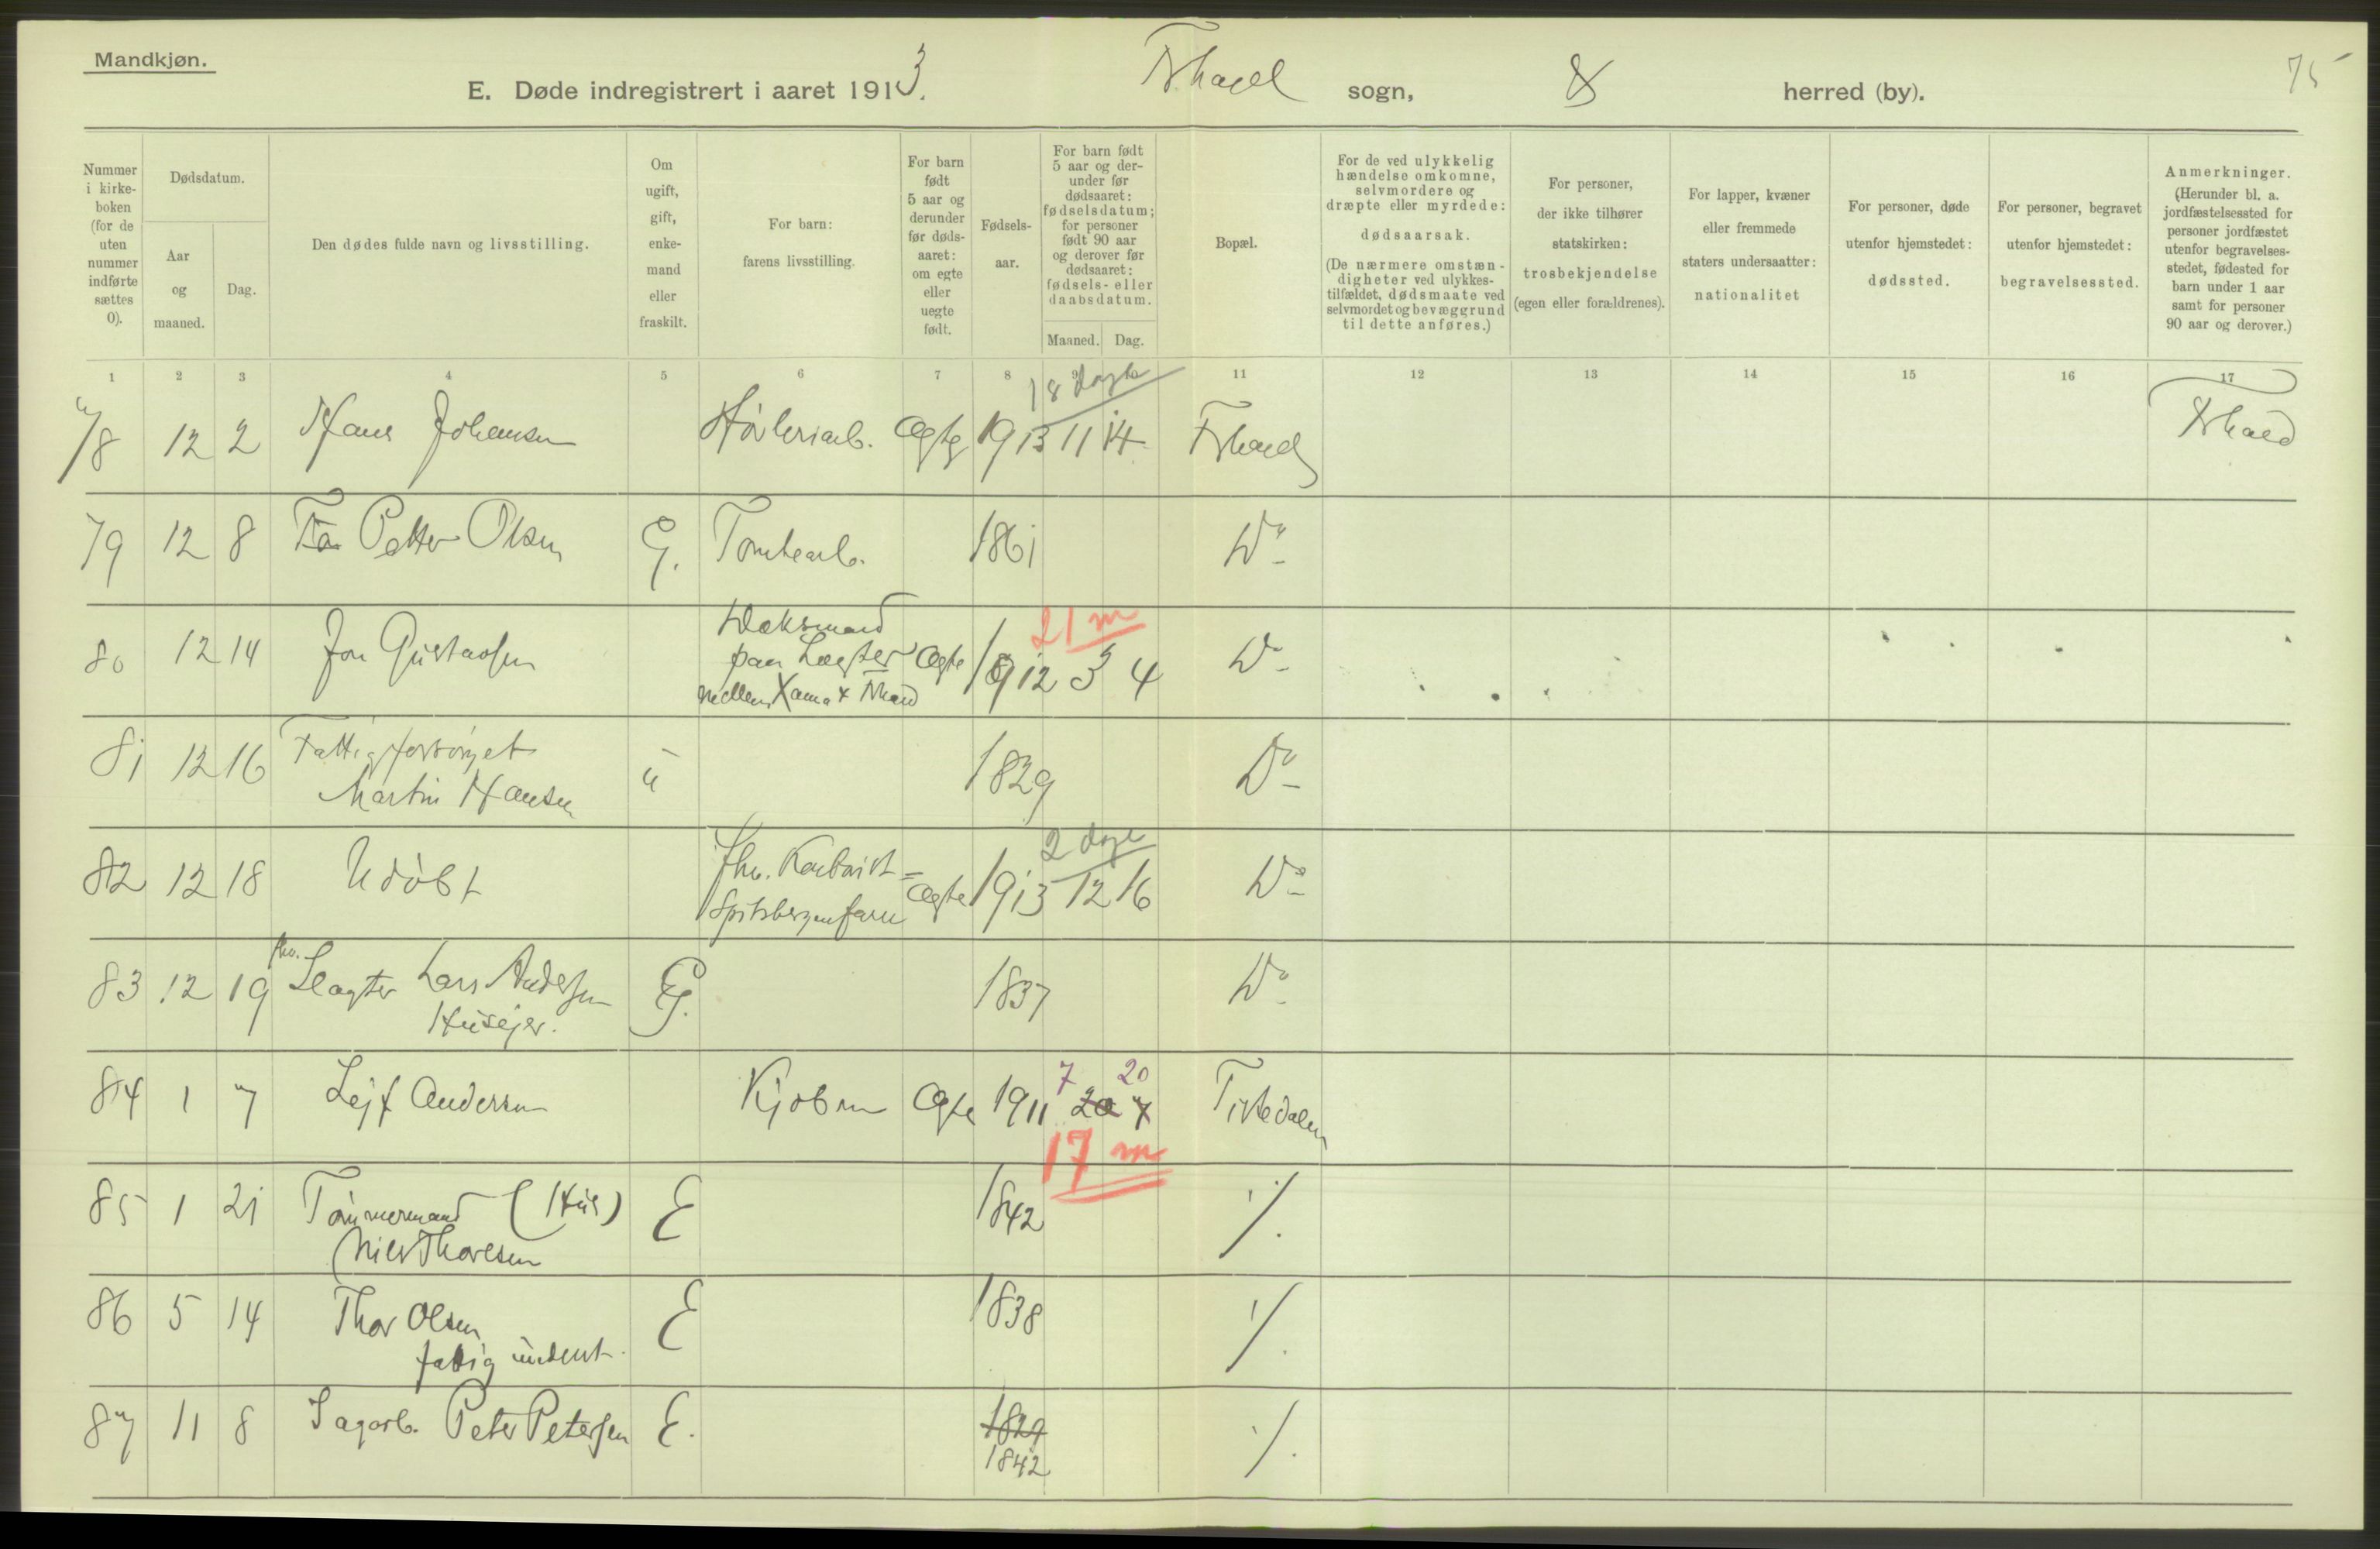 Mandkjøn.
E. Døde indregistrert i aaret 1913. Fr.hald sogn, herred (by).
75
Nummer i kirke-boken (for de uten nummer indførte sættes 0).
Dødsdatum.
Aar og maaned.
Dag.
Den dødes fulde navn og livsstilling.
Om ugift, gift, enke-mand eller fraskilt.
For barn: farens livsstilling.
For barn født 5 aar og derunder før døds-aaret: om egte eller uegte født.
Fødsels-aar.
For barn født 5 aar og der-under før dødsaaret: fødselsdatum; for personer født 90 aar og derover før dødsaaret: fødsels- eller daabsdatum.
Maaned. Dag.
Bopæl.
For de ved ulykkelig hændelse omkomne, selvmordere og dræpte eller myrdede: dødsaarsak.
(De nærmere omstæn-digheter ved ulykkes-tilfældet, dødsmaate ved selvmordet og bevæggrund til dette anføres.)
For personer, der ikke tilhører statskirken: trosbekjendelse (egen eller forældrenes).
For lapper, kvæner eller fremmede staters undersaatter: nationalitet
For personer, døde utenfor hjemstedet: dødssted.
For personer, begravet utenfor hjemstedet: begravelsessted.
Anmerkninger. (Herunder bl. a. jordfæstelsessted for personer jordfæstet utenfor begravelses-stedet, fødested for barn under 1 aar samt for personer 90 aar og derover.)
1 2 3 4 5 6 7 8 9 10 11 12 13 14 15 16 17
18 dage
78 12 2 Hans Johansen Høvleriarb. Ægte 1913 11 14 Frhald Frhald
79 12 8 Petter Olsen G. Tomtearb. 1861 Do
21 m
80 12 14 Jon Gustavsen Dæksmand paa Lægter mellem Xania & Frhald Ægte 1912 3 4 Do
81 12 16 Fattigforsørget Martin Hansen u 1829 Do
2 dage
82 12 18 Udøbt fhv. Spitsbergenfarer Ægte 1913 12 16 Do
83 12 19 fhv. Slagter Lars Andersen Husejer. G. 1837 Do
84 1 7 Lejf Andersen Kjøbm Ægte 1911 7 20 20 7 Tistedalen
17 m
85 1 21 Tømmermand (Hus) Niels Thoresen E 1842 ./.
86 5 14 Thor Olsen fattig underst. E 1838 ./.
87 11 8 Sagarb. Peter Petersen E. 1829 1842 ./.